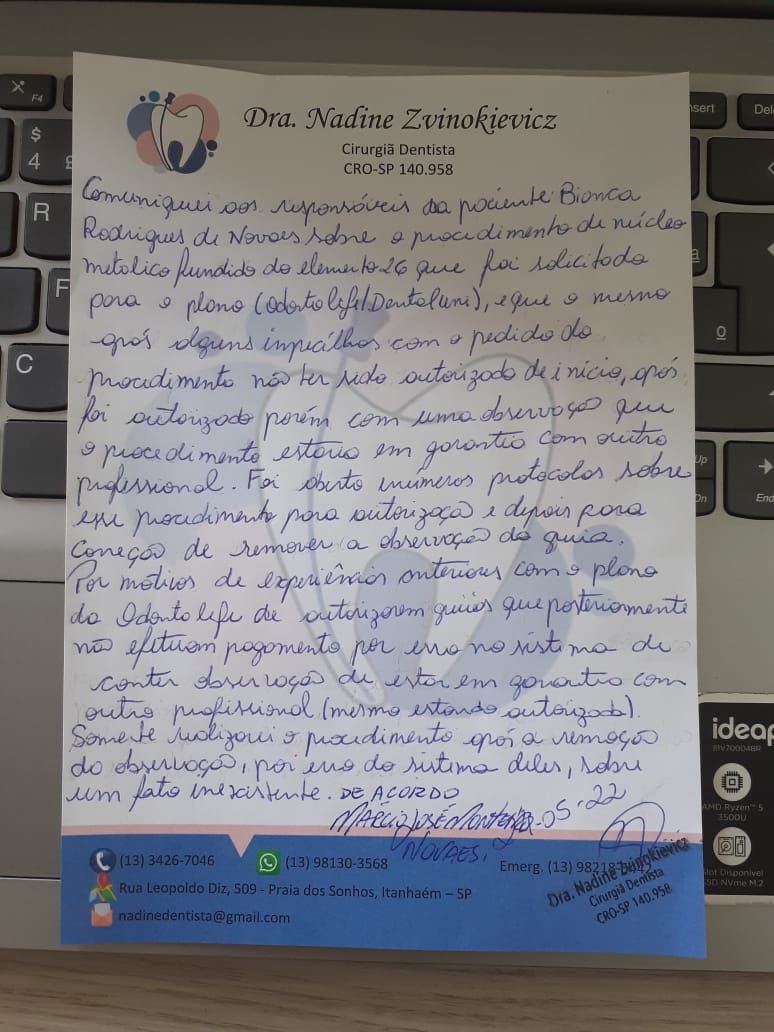 Dra. Nadine Zvinokievicz
Cirurgiã Dentista
CRO-SP 140.958
Comuniquei aos responsáveis da paciente Bianca
Rodrigues de Novaes sobre o procedimento de núcleo
metalico fundido do elemento 26 que foi solicitada
para o plano (Odontolife/Dentaluni), e que o mesmo
após alguns impecilhos com o pedido do
procedimento não ter sido autorizado de início, após
foi autorizado porém com uma observação que
o procedimento estaria em garantia com outro
profissional. Foi aberto inúmeros protocolos sobre
esse procedimento para autorização e depois para
correção de remover a observação da guia.
Por motivos de experiências anteriores com o plano
da Odontolife de autorizarem guias que posteriormente
não efetuam pagamento por erro no sistema de
conter observação de estar em garantia com
outro profissional (mesmo estando autorizado).
Somente realizarei o procedimento após a remoção
da observação, por erro do sistema deles, sobre
um fato inexistente. DE ACORDO
MÁRCIO JOSÉ 05-22
NOVAES.
(13) 3426-7046
(13) 98130-3568
Emerg. (13)
Rua Leopoldo Diz, 509 - Praia dos Sonhos, Itanhaém – SP
nadinedentista@gmail.com
Dra. Nadine Zvinokievicz
Cirurgiã Dentista
CRO-SP 140.958
F4
$
4
£
R
F
C
Insert
Del
End
ideap
81V70004BR
AMD Ryzen™ 5
3500U
Slot Disponível
SSD NVMe M.2